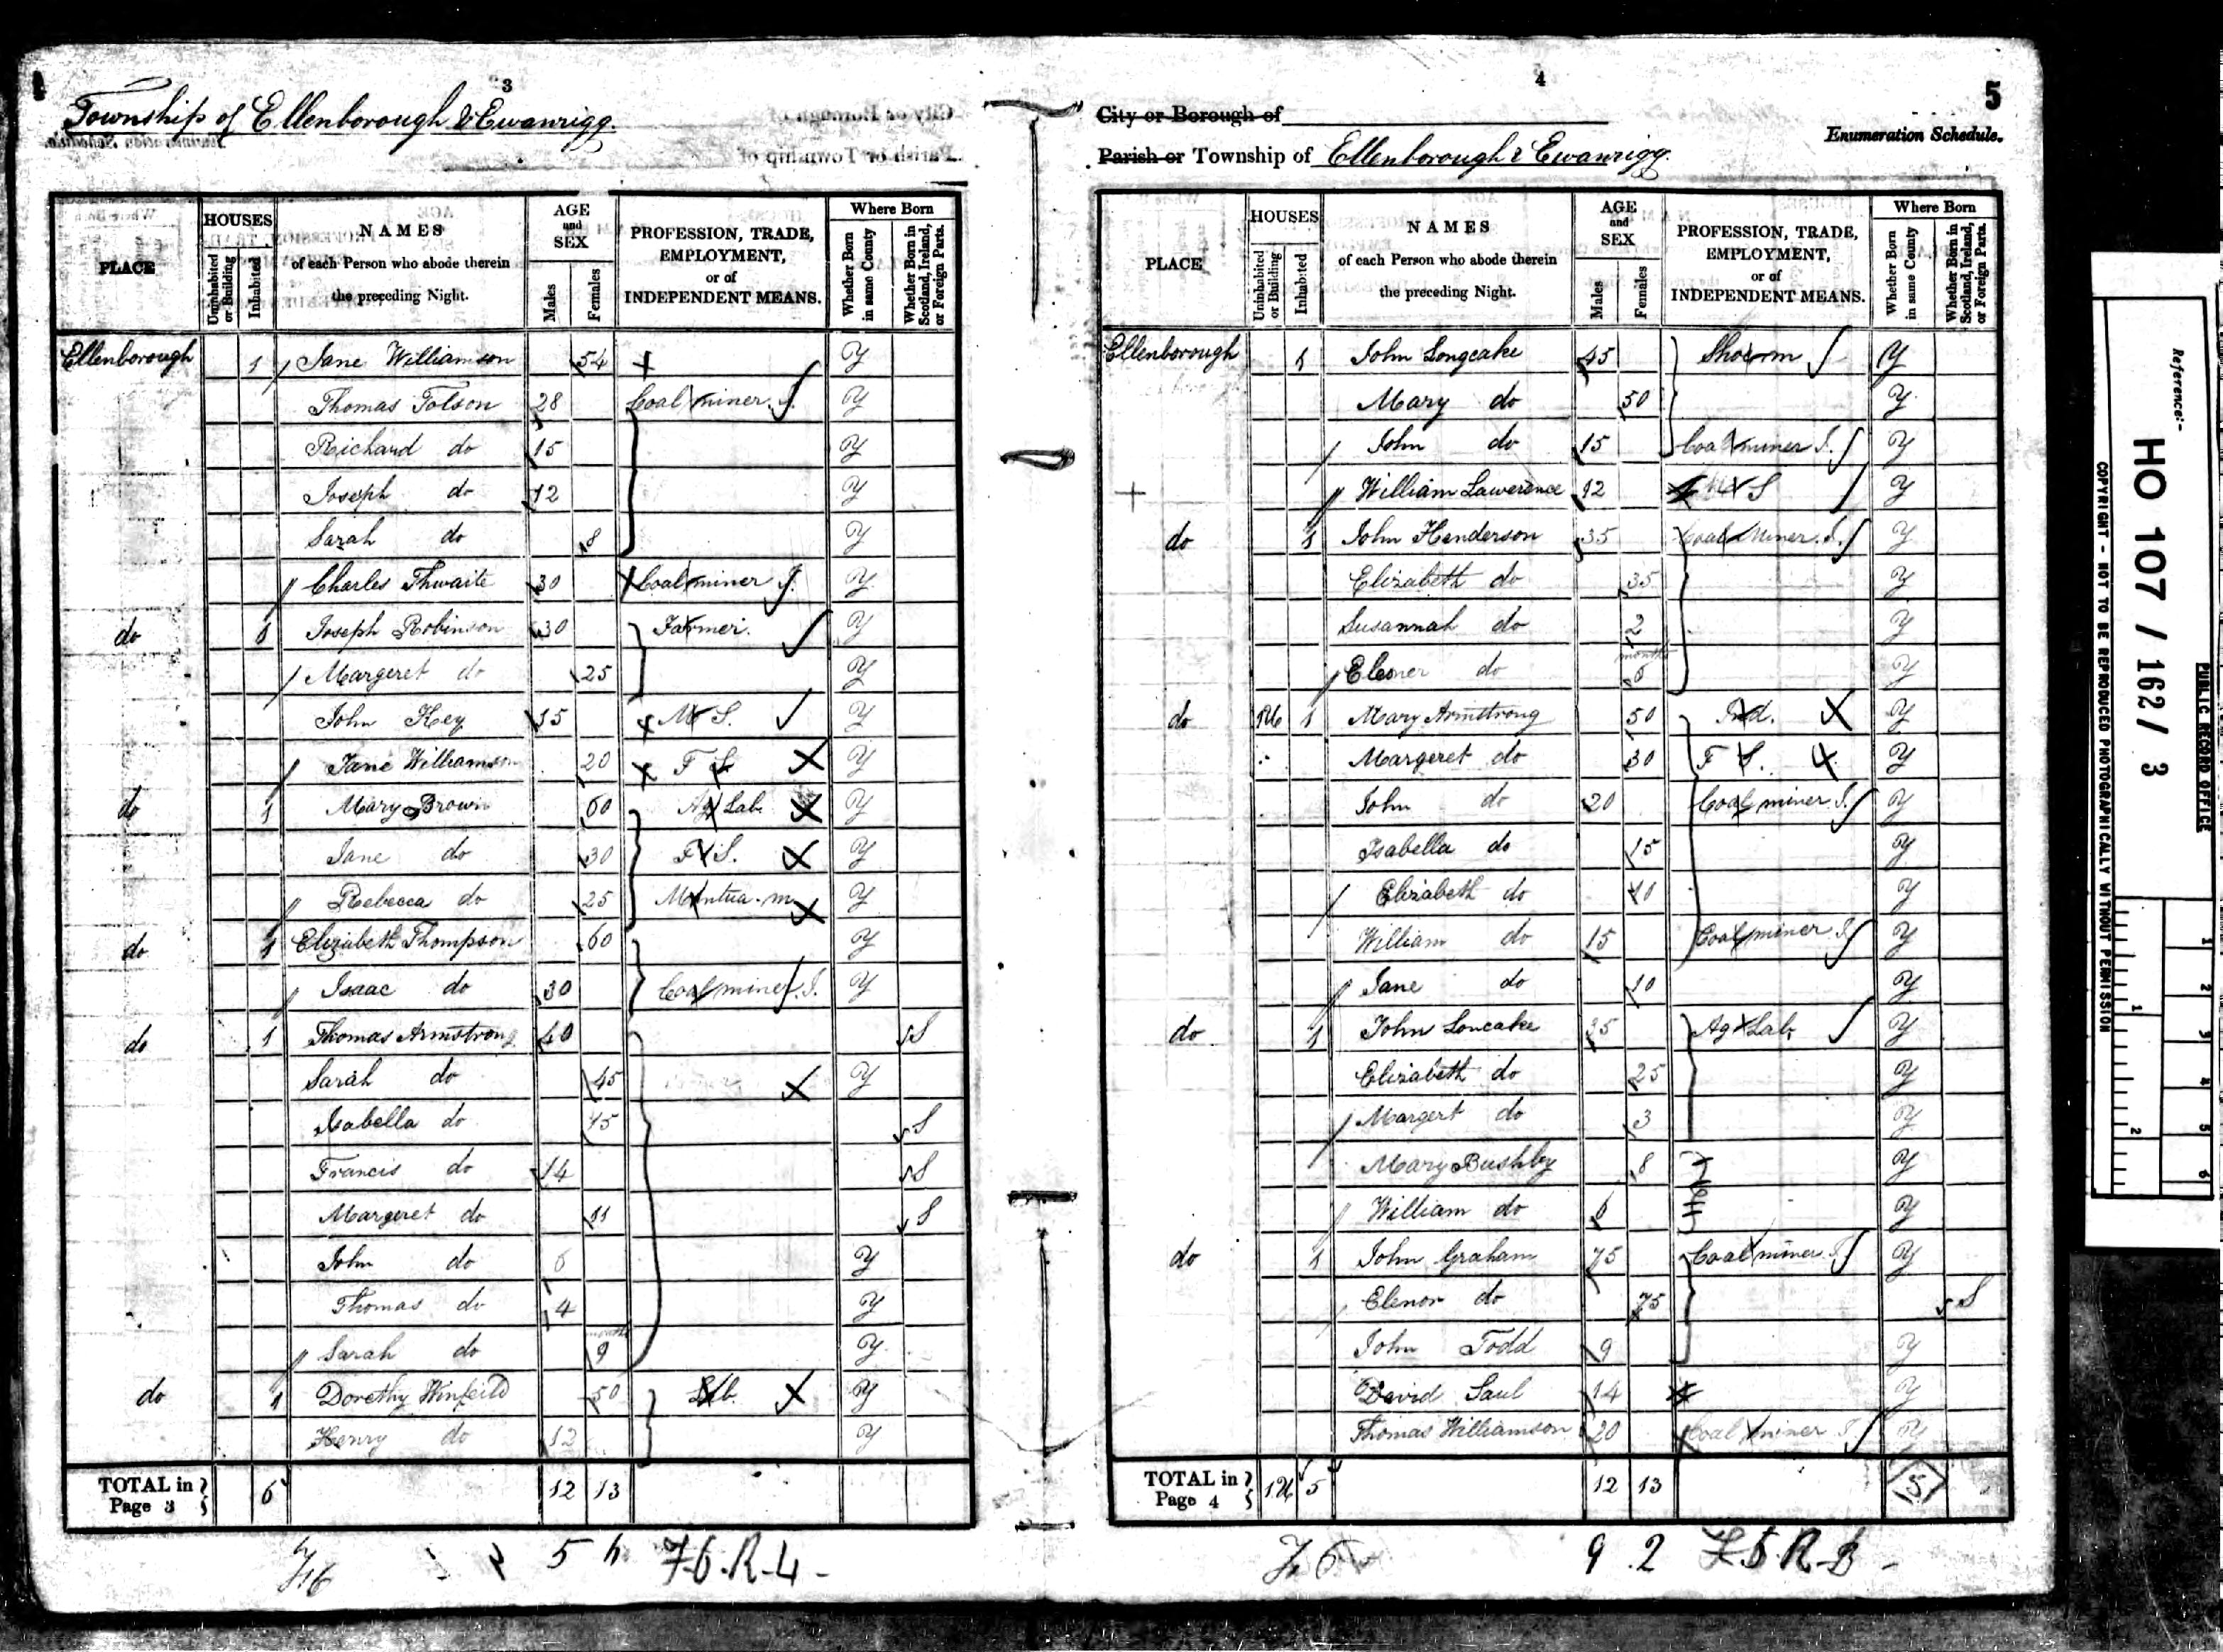 3
Township of Ellenborough & Ewanrigg.
PLACE
HOUSES
Uninhabited or Building
Inhabited
NAMES
of each Person who abode therein
the preceding Night.
AGE and SEX
Males
Females
PROFESSION, TRADE,
EMPLOYMENT,
or of
INDEPENDENT MEANS.
Where Born
Whether Born in same County
Whether Born in Scotland, Ireland, or Foreign Parts.
Ellenborough 1 Jane Williamson 54 Y
Thomas Tolson 28 Coal miner J. Y
Richard do 15 Y
Joseph do 12 Y
Sarah do 8 Y
Charles Thwaite 30 Coal miner J. Y
do 1 Joseph Robinson 30 Farmer. Y
Margeret do 25 Y
John Key 15 M S. Y
Jane Williamson 20 F S Y
do 1 Mary Brown 60 Ag Lab. Y
Jane do 30 F S. Y
Rebecca do 25 Mantua-m Y
do 1 Elizabeth Thompson 60 Y
Isaac do 30 Coal miner J. Y
do 1 Thomas Armstrong 40 S
Sarah do 45 Y
Isabella do 15 S
Francis do 14 S
Margeret do 11 S
John do 6 Y
Thomas do 4 Y
Sarah do months 9 Y
do 1 Dorethy Winfeild 50 Y
Henry do 12 Y
TOTAL in Page 3 6 12 13
5 h 76.R-4-
4
5
City or Borough of
Enumeration Schedule.
Parish or Township of Ellenborough & Ewanrigg.
PLACE
HOUSES
Uninhabited or Building
Inhabited
NAMES
of each Person who abode therein
the preceding Night.
AGE and SEX
Males
Females
PROFESSION, TRADE,
EMPLOYMENT,
or of
INDEPENDENT MEANS.
Where Born
Whether Born in same County
Whether Born in Scotland, Ireland, or Foreign Parts.
Ellenborough 1 John Longcake 45 Shoe m Y
Mary do 50 Y
John do 15 Coal miner J. Y
William Lawerence 12 M S Y
do 1 John Henderson 35 Coal Miner. J. Y
Elizabeth do 35 Y
Susannah do 2 Y
Elesner do months 6 Y
do 1U 1 Mary Armstrong 50 Ind. Y
Margeret do 30 F S. Y
John do 20 Coal miner J. Y
Isabella do 15 Y
Elizabeth do 10 Y
William do 15 Coal miner J. Y
Jane do 10 Y
do 1 John Loncake 35 Ag Lab. Y
Elizabeth do 25 Y
Margert do 3 Y
Mary Bushby 8 Y
William do 6 Y
do 1 John Graham 75 Coal miner J Y
Elenor do 75 S
John Todd 9 Y
David Saul 14 Y
Thomas Williamson 20 Coal miner J Y
TOTAL in Page 4 1U 5 12 13 5
9.2
Reference:-
HO 107 / 162 / 3
PUBLIC RECORD OFFICE
COPYRIGHT - NOT TO BE REPRODUCED PHOTOGRAPHICALLY WITHOUT PERMISSION
1
2
3
4
5
6
1
2